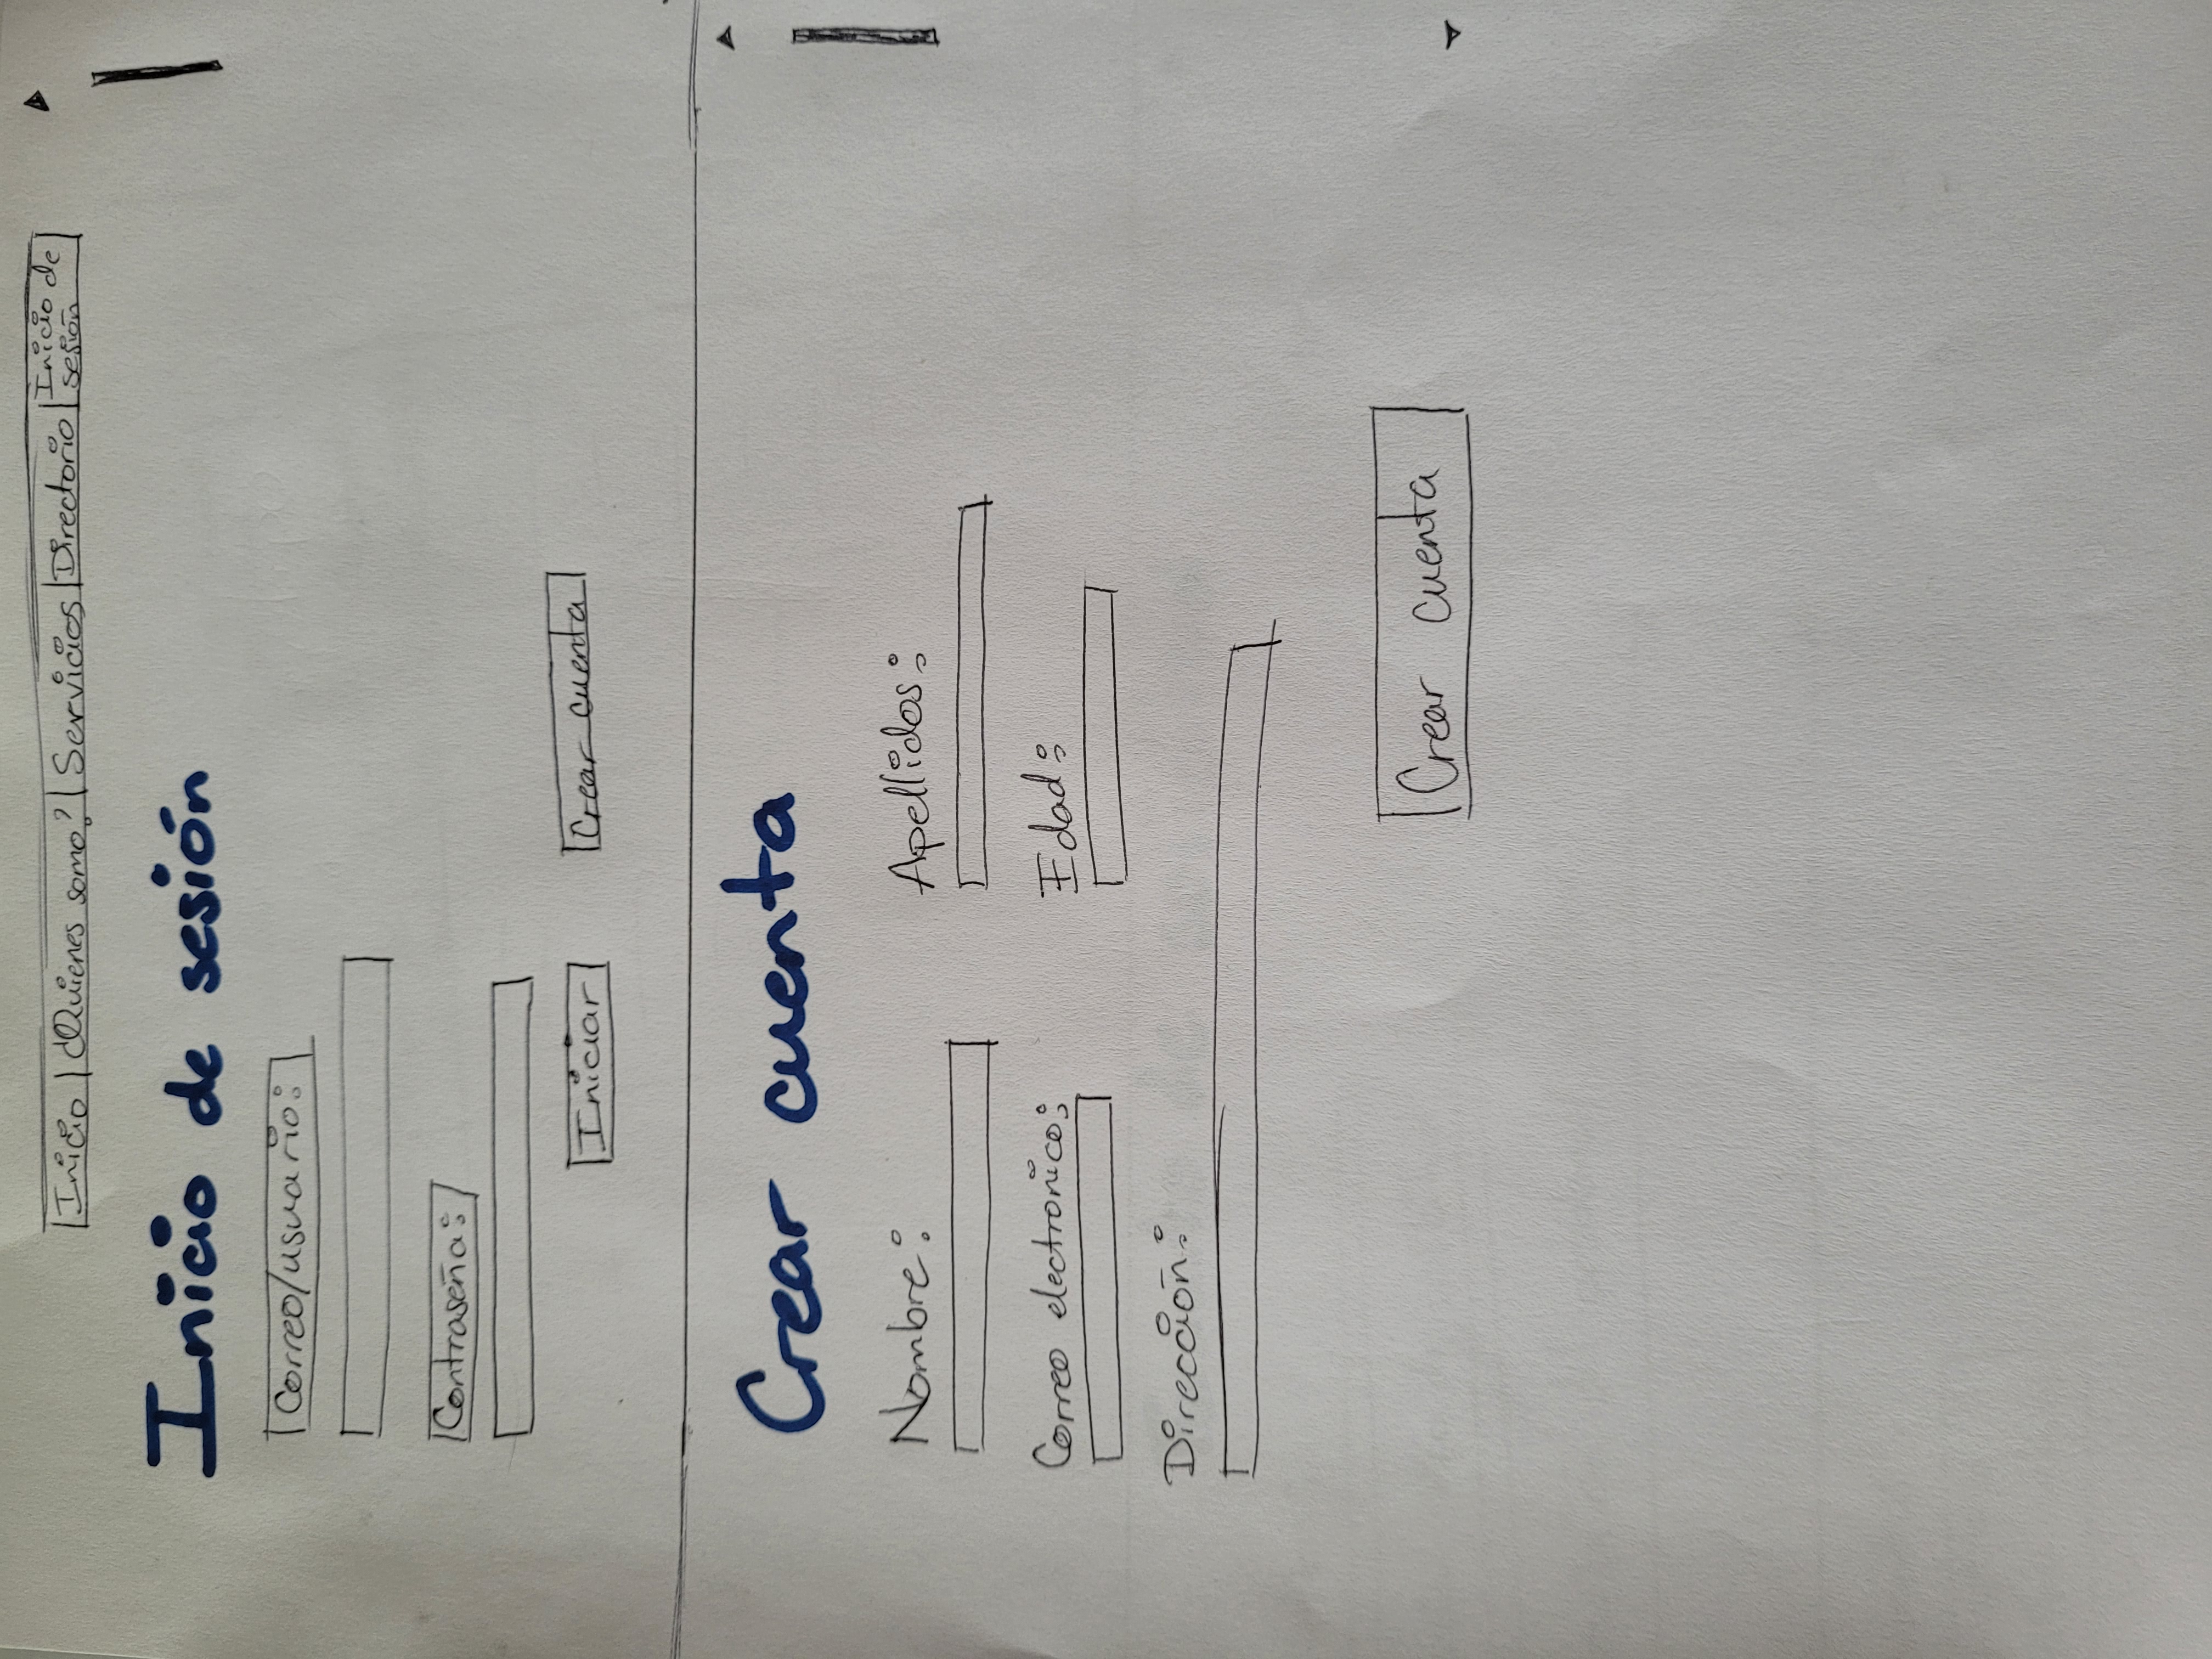 Inicio ¿Quienes somo? Servicios Directorio Inicio de sesión
Inicio de sesión
Correo/usuario:
Contraseña:
Iniciar Crear cuenta
Crear cuenta
Nombre: Apellidos:
Correo electronico: Edad:
Dirección:
Crear cuenta